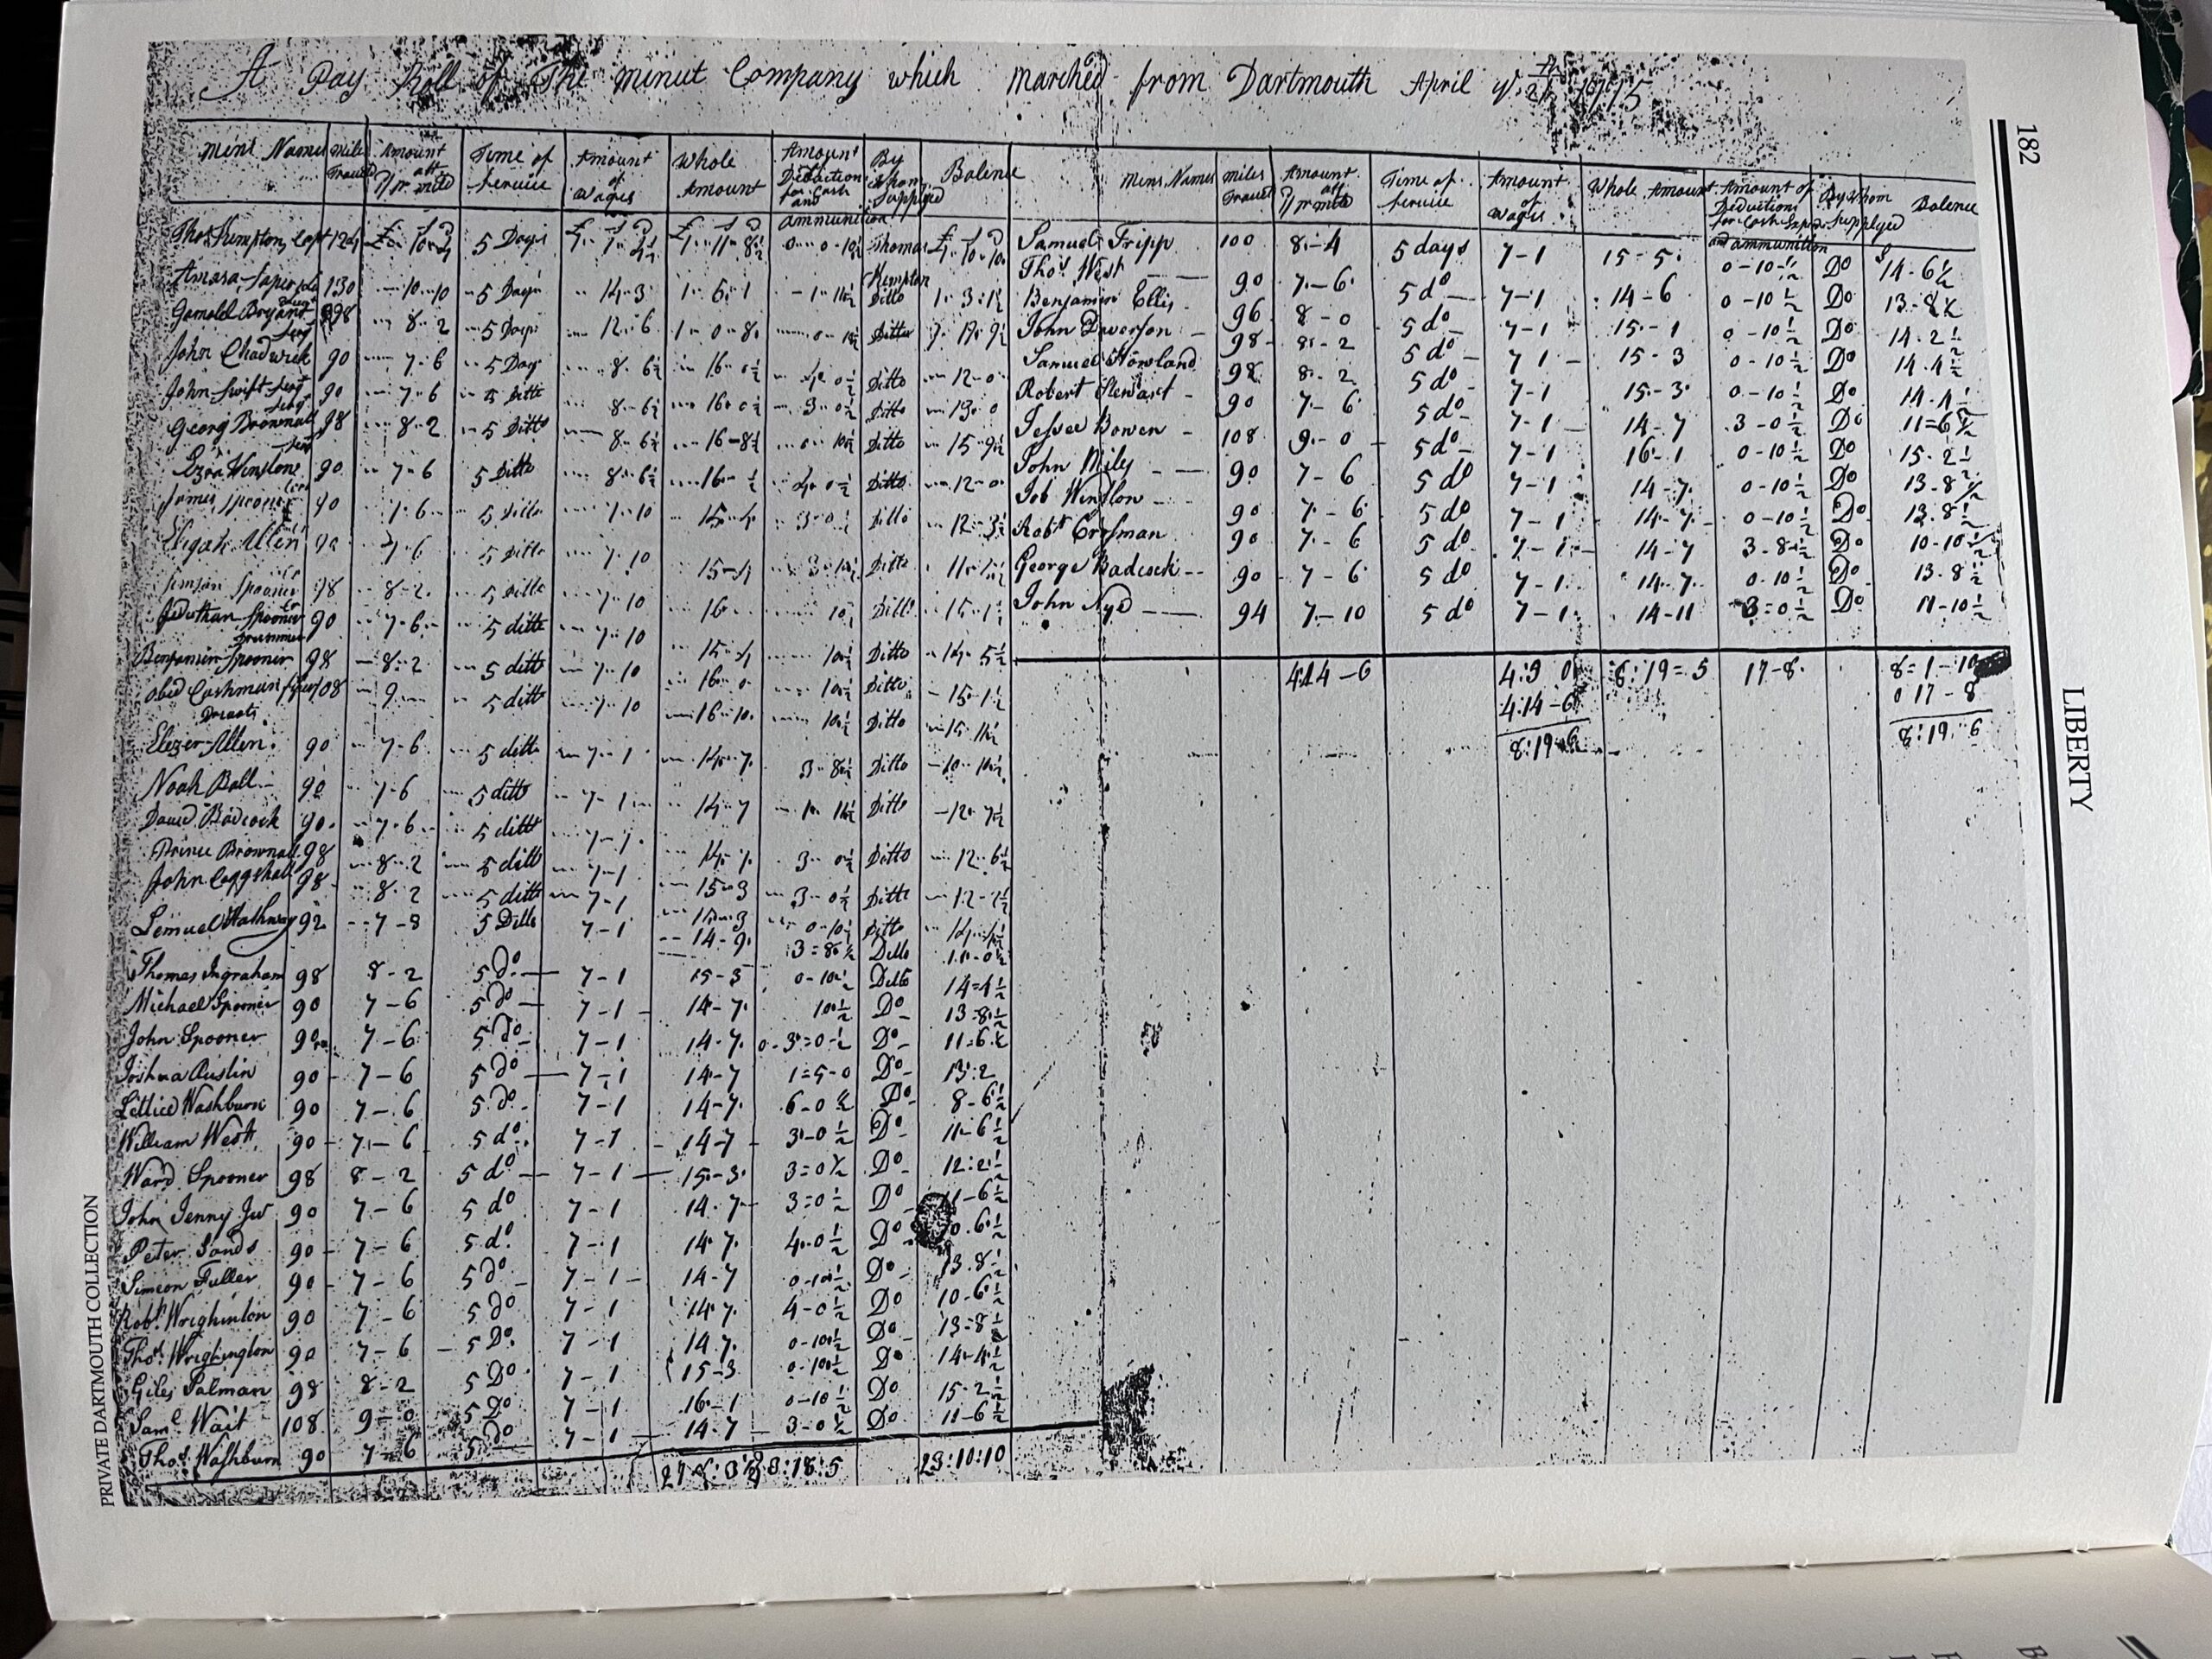 A Pay Roll of The minut Company which marched from Dartmouth April
Mens Names
miles Travel
Amount att 1/ pr mile
Time of Service
Amount of Wages
Whole Amount
Amount Deduction for Cash and ammunition
By Whom Supplyed
Balence
Thos. Kempton, Capt 5 Days Thomas Kempton
130 10 10 5 Days 14 3 1 5 1 Ditto 1 3
98 8 2 5 Days 12 6 1 0 8 Ditto
John Chadwick 90 7 6 5 Days 8 6½ 16 0½ 4 0½ Ditto 12 0
John Swift Sergt 90 7 6 5 Ditto 8 6½ 16 0½ 3 0½ Ditto 13 0
Georg Brownall Sergt 98 8 2 5 Ditto 8 6½ 16 8½ 0 10½ Ditto 15 9½
Ezra Winslone 90 7 6 5 Ditto 8 6½ 16 ½ 4 0½ Ditto 12 0
James Spooner 90 7 6 5 Ditto 7 10 15 4 3 0½ Ditto 12 3½
Elijah Allen 90 7 6 5 Ditto 7 10 15 4 3 10½ Ditto 11
Simson Spooner 98 8 2 5 Ditto 7 10 16 10½ Ditto 15 1½
Spooner 90 7 6 5 ditto 7 10 15 4 10½ Ditto 14 5½
Drummer
Benjamin Spooner 98 8 2 5 ditto 7 10 16 0 10½ Ditto 15 1½
Obed Cashman fifer 108 9 5 ditto 7 10 16 10 10½ Ditto 15 11½
Privats
Elezer Allen 90 7 6 5 ditto 7 1 14 7 3 8½ Ditto 10 10½
Noah Ball 90 7-6 5 ditto 7-1 14 7 1 11½ Ditto 12 7½
David Badcock 90 7-6 5 ditto 7-1 14 7 3 0½ Ditto 12 6½
Prince Brownall 98 8-2 5 ditto 7-1 15-3 3 0½ Ditto 12-2½
John Coggshall 98 8-2 5 ditto 7-1 15-3 0-10½ Ditto 14 4½
Lemuel Hathway 92 7-8 5 Ditto 7-1 14-9 3=8½ Ditto 11-0½
Thomas Ingraham 98 8-2 5 Do 7-1 15-3 0-10½ Ditto 14=4½
Michael Spooner 90 7-6 5 Do 7-1 14-7 10½ Do 13-8½
John Spooner 90 7-6 5 Do 7-1 14-7 0-3=0-½ Do 11-6½
Joshua Austin 90 7-6 5 Do 7-1 14-7 1=5-0 Do 13:2
Lettice Washburn 90 7-6 5 Do 7-1 14-7 6-0½ Do 8-6½
William West 90 7-6 5 do 7-1 14-7 3-0½ Do 11-6½
Ward Spooner 98 8-2 5 do 7-1 15-3 3=0½ Do 12:2½
John Jenny Jur 90 7-6 5 do 7-1 14-7 3=0½ Do 11-6½
Peter Sands 90 7-6 5 do 7-1 14-7 4-0½ Do 0.6½
Simeon Fuller 90 7-6 5 do 7-1 14-7 0-10½ Do 13.8½
Robt. Wrighinton 90 7-6 5 do 7-1 14-7 4-0½ Do 10-6½
Thos. Wrighington 90 7-6 5 Do 7-1 14-7 0-10½ Do 13=8½
Giles Salman 98 8-2 5 Do 7-1 15-3 0-10½ Do 14-4½
Saml. Wait 108 9-0 5 Do 7-1 16-1 0-10½ Do 15-2½
Thos. Washburn 90 7-6 5 do 7-1 14-7 3-0½ Do 11-6½
23:10:10
Mens, Names
miles Travel
Amount att 1/ pr mile
Time of Service
Amount of Wages
Whole Amount
Amount of Deductions for Cash and ammunition
By Whom Supplyed
Balence
Samuel Tripp 100 8-4 5 days 7-1 15-5 0-10-½ Do 14-6½
Thos. West 90 7-6 5 do 7-1 14-6 0-10½ Do 13-8½
Benjamin Ellis 96 8-0 5 do 7-1 15-1 0-10½ Do 14-2½
John 98 8-2 5 do 7-1 15-3 0-10½ Do 14-4½
Samuel Howland 98 8-2 5 do 7-1 15-3 0-10½ Do 14-4½
Robert Stewart 90 7-6 5 do 7-1 14-7 3-0½ Do 11=6½
Jessee Bowen 108 9-0 5 do 7-1 16-1 0-10½ Do 15-2½
John Wiley 90 7-6 5 do 7-1 14-7 0-10½ Do 13-8½
Job Winslon 90 7-6 5 do 7-1 14-7 0-10½ Do 13.8½
Robt Crosman 90 7-6 5 do 7-1 14-7 3-8½ Do 10-10½
George Badcock 90 7-6 5 do 7-1 14-7 0-10½ Do 13-8½
John Nye 94 7-10 5 do 7-1 14-11 3=0½ Do 11-10½
4:14-6 4:9 0 6:19=5 17-8 8=1-10
4:14-6 0 17-8
8:19-6 8:19:6
182
LIBERTY
PRIVATE DARTMOUTH COLLECTION